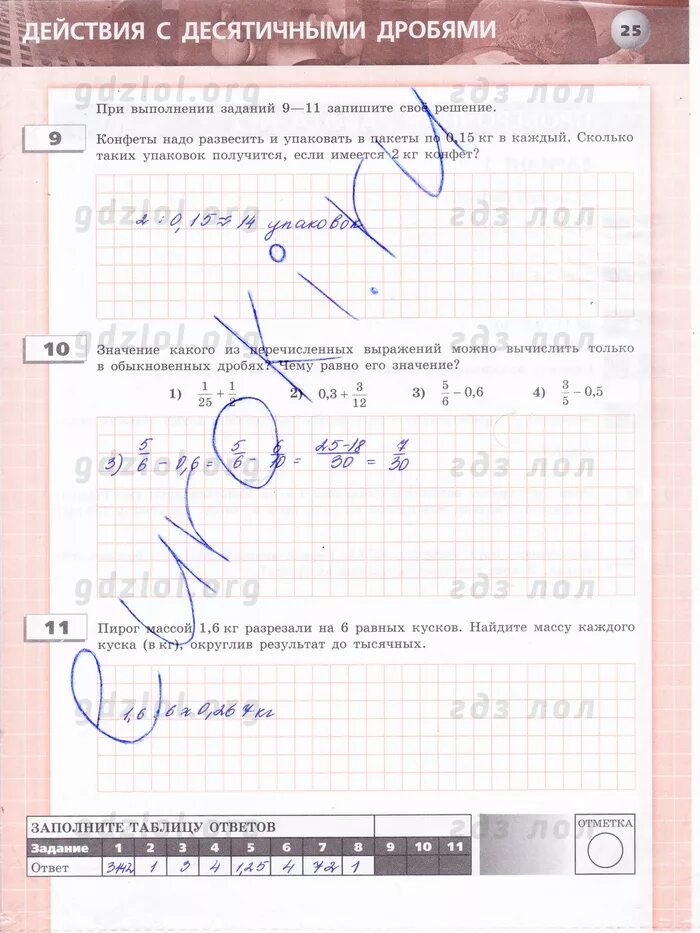 ДЕЙСТВИЯ С ДЕСЯТИЧНЫМИ ДРОБЯМИ 25
gdzlol.org гдз лол
При выполнении заданий 9—11 запишите своё решение.
9 Конфеты надо развесить и упаковать в пакеты по 0,15 кг в каждый. Сколько
таких упаковок получится, если имеется 2 кг конфет?
gdzlol.org гдз лол
2 : 0,15 ≈ 14 упаковок
gdzlol.org гдз лол
10 Значение какого из перечисленных выражений можно вычислить только
в обыкновенных дробях? Чему равно его значение?
1) 1/25 + 1/2 2) 0,3 + 3/12 3) 5/6 − 0,6 4) 3/5 − 0,5
3) 5/6 − 0,6 = 5/6 − 6/10 = 25-18/30 = 7/30
gdzlol.org гдз лол
gdzlol.org гдз лол
11 Пирог массой 1,6 кг разрезали на 6 равных кусков. Найдите массу каждого
куска (в кг), округлив результат до тысячных.
gdzlol.org гдз лол
1,6 : 6 ≈ 0,267 кг
euroki.ru
ЗАПОЛНИТЕ ТАБЛИЦУ ОТВЕТОВ
gdzlol.org гдз лол
ОТМЕТКА
Задание 1 2 3 4 5 6 7 8 9 10 11
Ответ 3142 1 3 4 1,25 4 72 1